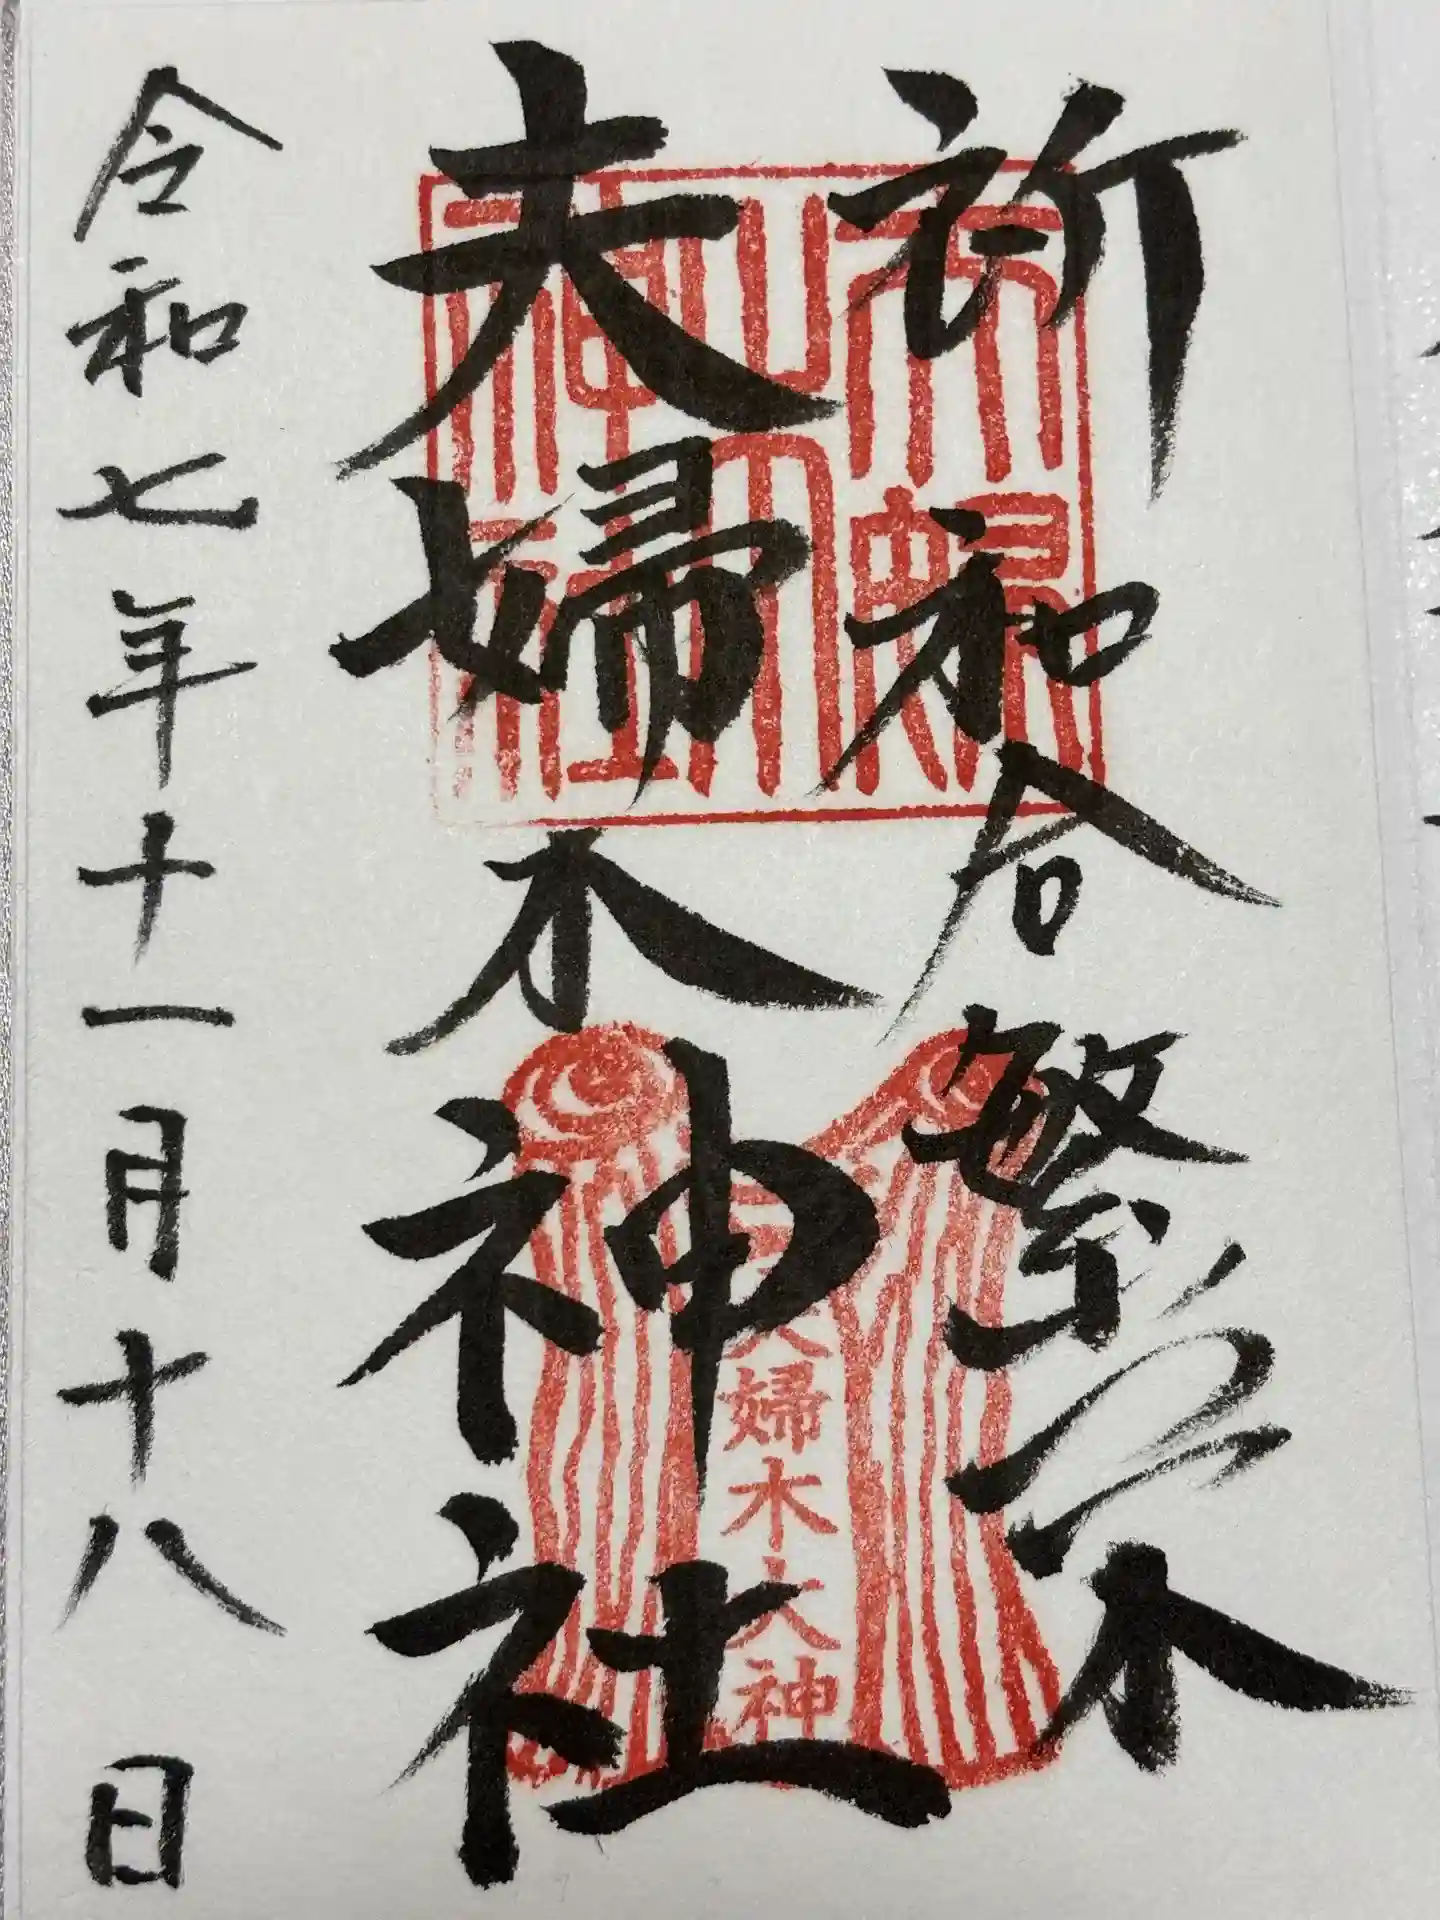 祈和合繁栄
夫婦木神社
令和七年十一月十八日
夫婦木神社
夫婦木大神